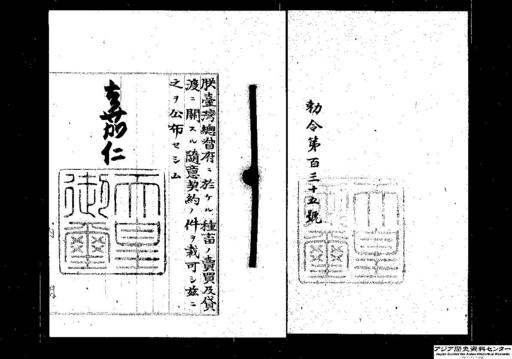 勅令第百三十五號
朕臺灣總督府ニ於ケル種苗ノ賣買及貸
渡ニ關スル隨意契約ノ件ヲ裁可シ茲ニ
之ヲ公布セシム
嘉仁
天皇
御璽
アジア歴史資料センター
Japan Center for Asian Historical Records